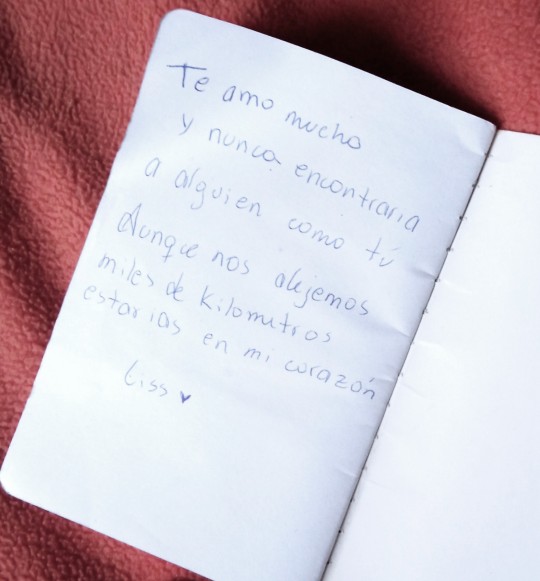 Te amo mucho
y nunca encontraria
a alguien como tú
Aunque nos alejemos
miles de kilometros
estarias en mi corazón
Liss ♥